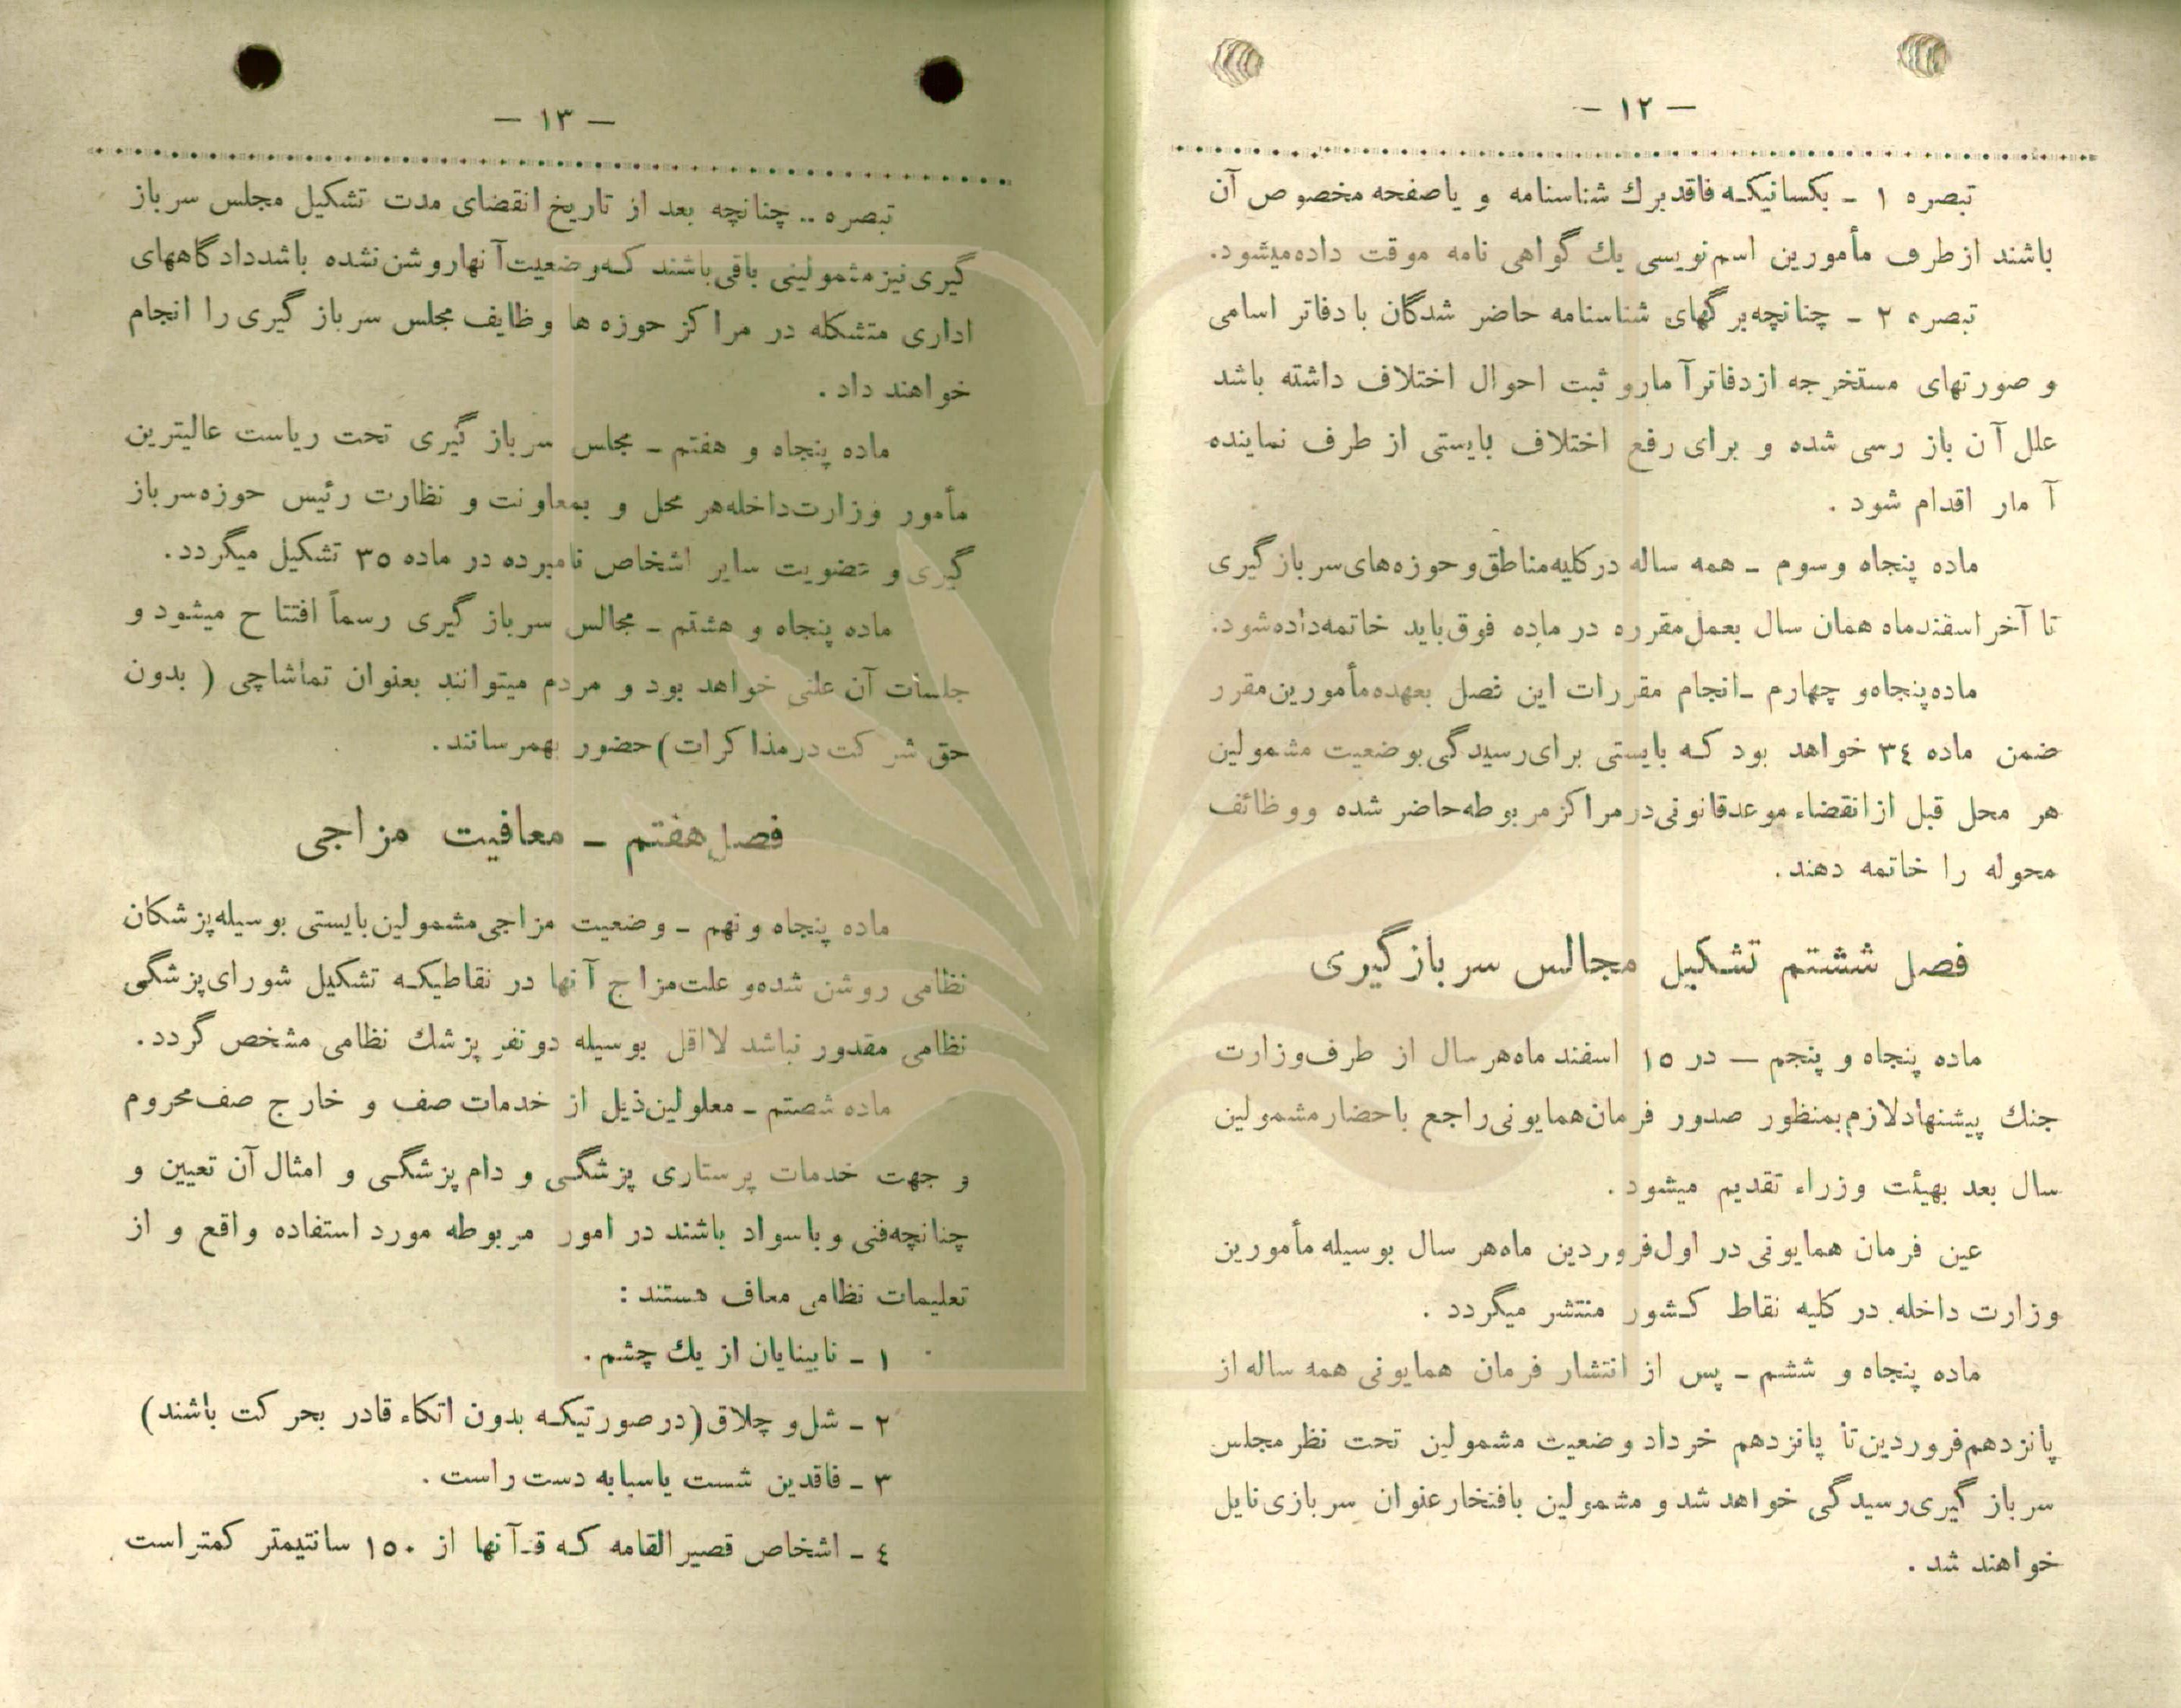 — ۱۲ —
تبصره ۱ - بکسانیکه فاقد برك شناسنامه و یا صفحه مخصوص آن
باشند از طرف مأمورین اسم نویسی یك گواهی نامه موقت داده میشود.
تبصره ۲ - چنانچه برگهای شناسنامه حاضر شدگان با دفاتر اسامی
و صورتهای مستخرجه از دفاتر آمار و ثبت احوال اختلاف داشته باشد
علل آن باز رسی شده و برای رفع اختلاف بایستی از طرف نماینده
آمار اقدام شود .
ماده پنجاه و سوم - همه ساله در کلیه مناطق و حوزه های سربازگیری
تا آخر اسفندماه همان سال بعمل مقرره در ماده فوق باید خاتمه داده شود.
ماده پنجاه و چهارم - انجام مقررات این فصل بعهده مأمورین مقرر
ضمن ماده ۳٤ خواهد بود که بایستی برای رسیدگی بوضعیت مشمولین
هر محل قبل از انقضاء موعد قانونی در مراکز مربوطه حاضر شده و وظائف
محوله را خاتمه دهند .
فصل ششتم تشکیل مجالس سربازگیری
ماده پنجاه و پنجم — در ۱٥ اسفند ماه هر سال از طرف وزارت
جنك پیشنهاد لازم بمنظور صدور فرمان همایونی راجع باحضار مشمولین
سال بعد بهیئت وزراء تقدیم میشود .
عین فرمان همایونی در اول فروردین ماه هر سال بوسیله مأمورین
وزارت داخله در کلیه نقاط کشور منتشر میگردد .
ماده پنجاه و ششم - پس از انتشار فرمان همایونی همه ساله از
پانزدهم فروردین تا پانزدهم خرداد وضعیت مشمولین تحت نظر مجلس
سرباز گیری رسیدگی خواهد شد و مشمولین بافتخار عنوان سربازی نایل
خواهند شد .
— ۱۳ —
تبصره .. چنانچه بعد از تاریخ انقضای مدت تشکیل مجلس سرباز
گیری نیز مشمولینی باقی باشند که وضعیت آنها روشن نشده باشد دادگاههای
اداری متشکله در مراکز حوزه ها وظایف مجلس سرباز گیری را انجام
خواهند داد .
ماده پنجاه و هفتم - مجلس سرباز گیری تحت ریاست عالیترین
مأمور وزارت داخله هر محل و بمعاونت و نظارت رئیس حوزه سرباز
گیری و عضویت سایر اشخاص نامبرده در ماده ۳٥ تشکیل میگردد .
ماده پنجاه و هشتم - مجالس سرباز گیری رسماً افتتاح میشود و
جلسات آن علنی خواهد بود و مردم میتوانند بعنوان تماشاچی ( بدون
حق شرکت در مذاکرات) حضور بهمرسانند .
فصل هفتم - معافیت مزاجی
ماده پنجاه و نهم - وضعیت مزاجی مشمولین بایستی بوسیله پزشکان
نظامی روشن شده و علت مزاج آنها در نقاطیکه تشکیل شورای پزشگی
نظامی مقدور نباشد لااقل بوسیله دو نفر پزشك نظامی مشخص گردد .
ماده شصتم - معلولین ذیل از خدمات صف و خارج صف محروم
و جهت خدمات پرستاری پزشگی و دام پزشگی و امثال آن تعیین و
چنانچه فنی و با سواد باشند در امور مربوطه مورد استفاده واقع و از
تعلیمات نظامی معاف هستند :
۱ - نابینایان از یك چشم .
۲ - شل و چلاق (در صورتیکه بدون اتکاء قادر بحرکت باشند)
۳ - فاقدین شست یا سبابه دست راست .
٤ - اشخاص قصیر القامه که قد آنها از ۱٥۰ سانتیمتر کمتر است .